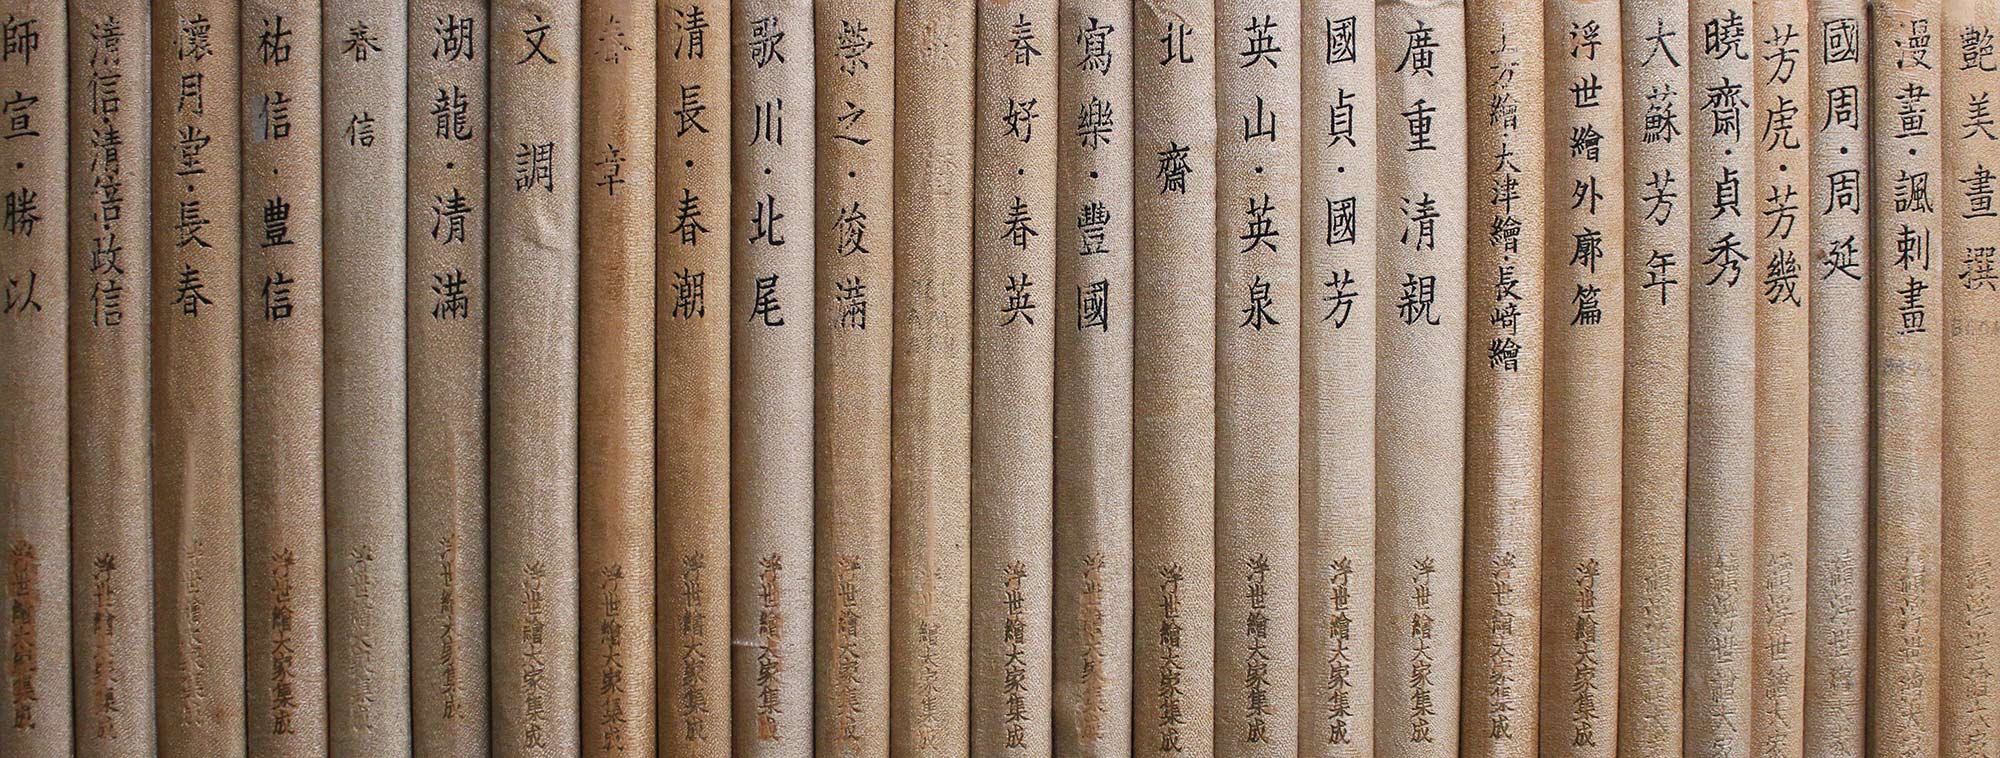 師宣・勝以
浮世繪大家集成
清信・清倍・政信
浮世繪大家集成
懷月堂・長春
浮世繪大家集成
祐信・豊信
浮世繪大家集成
春信
浮世繪大家集成
湖龍・清滿
浮世繪大家集成
文調
浮世繪大家集成
春章
浮世繪大家集成
清長・春潮
浮世繪大家集成
歌川・北尾
浮世繪大家集成
榮之・俊滿
浮世繪大家集成
繪大家集成
春好・春英
浮世繪大家集成
寫樂・豐國
浮世繪大家集成
北齋
浮世繪大家集成
英山・英泉
浮世繪大家集成
國貞・國芳
浮世繪大家集成
廣重 清親
浮世繪大家集成
上方繪・大津繪・長﨑繪
浮世繪大家集成
浮世繪外廓篇
浮世繪大家集成
大蘇芳年
續浮世繪大
曉齋・貞秀
續浮世繪大
芳虎・芳幾
續浮世繪大家
國周・周延
續浮世繪大家
漫畫・諷刺畫
續浮世繪大家
艶美畫撰
續浮世繪大家